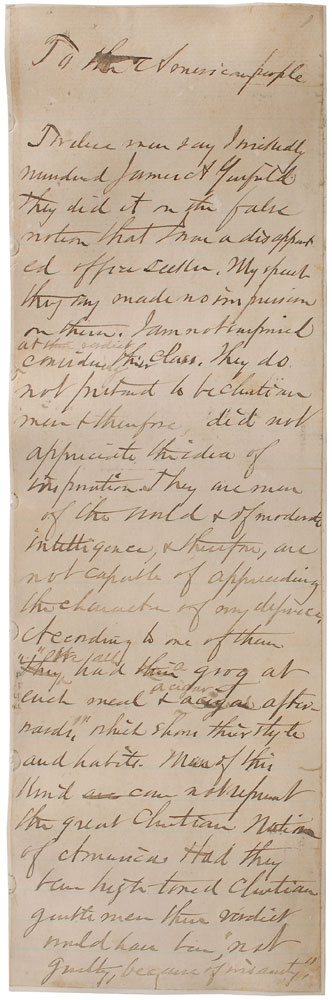 To the American people
Twelve men say I wickedly
murdered James A Garfield
They did it on the false
notion that I was a disappoint
ed office seeker. My speech
they say made no impression
on them. I am not surprised
at the verdict
considering their class. They do
not pretend to be Christian
men & therefore, did not
appreciate the idea of
inspiration. They are men
of the world & of moderate
intelligence, & therefore, are
not capable of appreciating
the character of my defence.
According to one of them
"We all
had grog at
each meal & a cigar after-
wards," which shows their style
and habits. Men of this
kind can not represent
the great Christian Nation
of America. Had they
been high-toned Christian
gentlemen their verdict
would have been, "not
guilty, because of insanity."